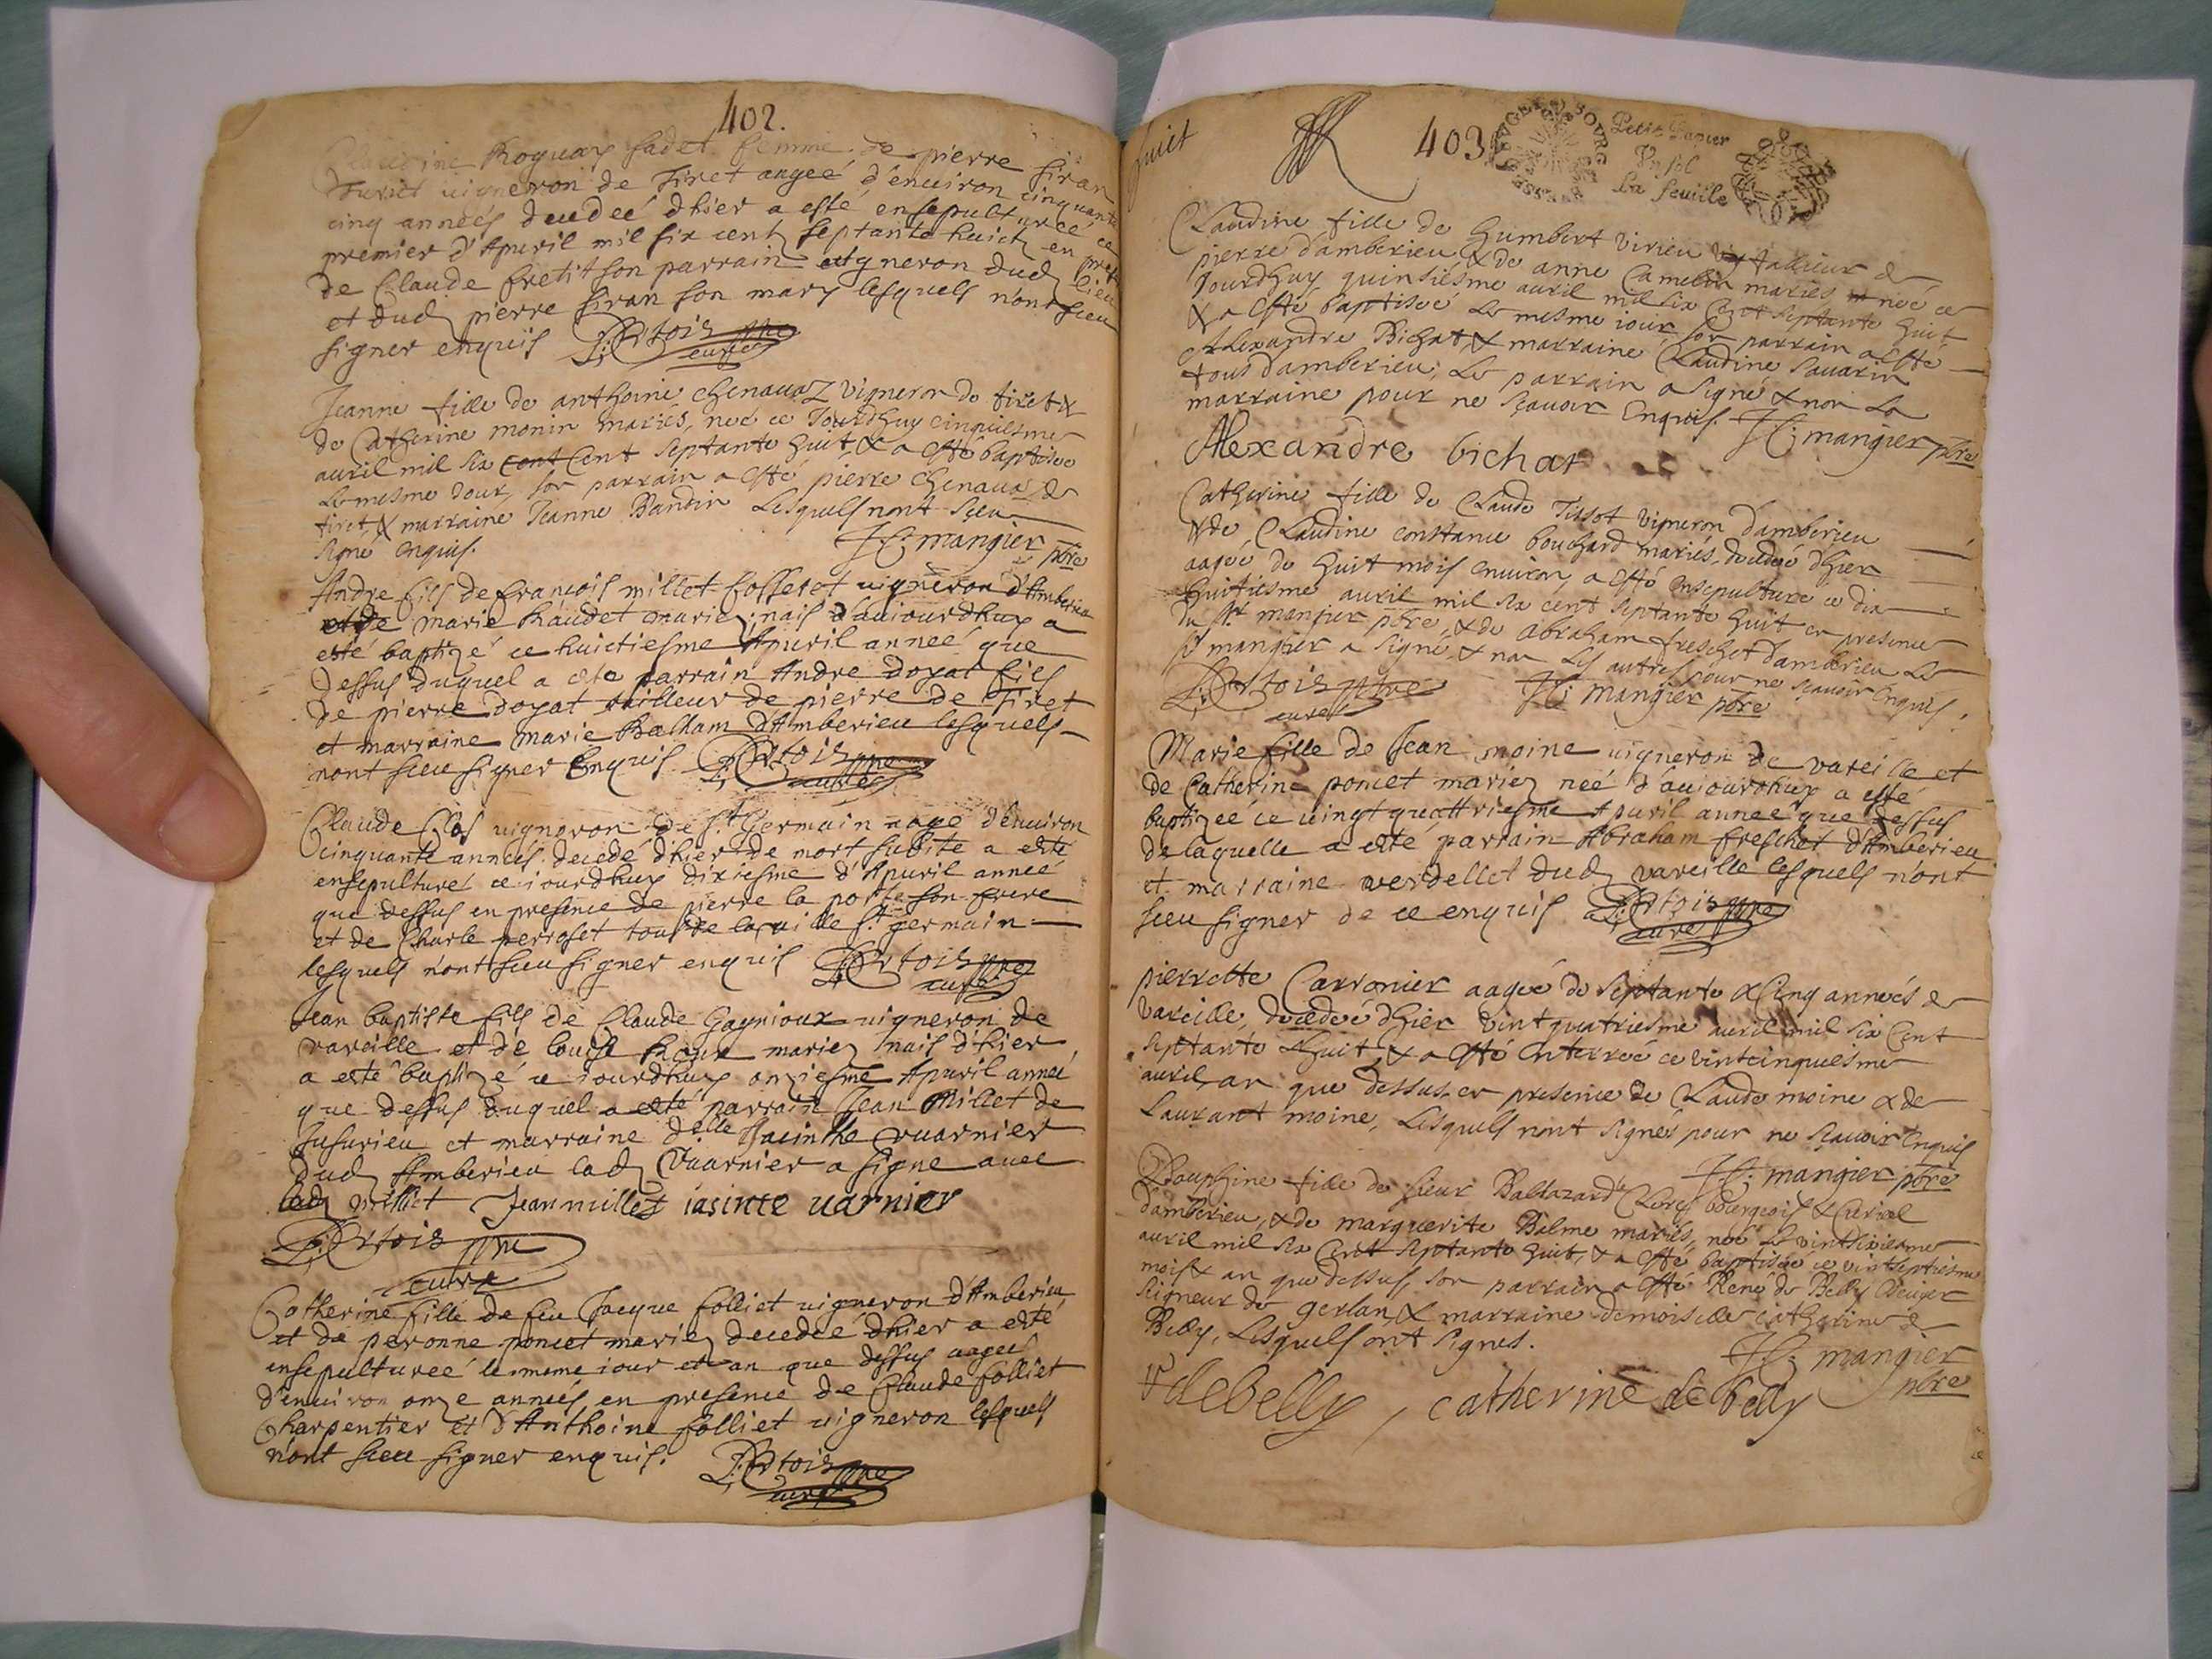 402.
Claudine Roguay fadet femme de pierre firan
Furiet vigneron de Tiret aagée d'environ cinquante
cinq années decedeé dhier a esté ensepulturée ce
premier d'Apuril mil six cent septante huict en pres
de Claude fretit son parrain vigneron dud lieu
et dud pierre firan son mary lesquels n'ont sceu
signer enquis P: Ortois pbre
curé
Jeanne fille de anthoine chenavaz vigneron de tiret &
de Catherine monin mariés, née ce Jourdhuy cinquiesme
auril mil six cent Cent septante huit, & a esté baptisée
le mesme Jour, son parrain a esté pierre chenavaz de
tiret, & marraine Jeanne Bandin Lesquels nont sceu
signé enquis. J C: mangier pbre
Andre fils de francois millet fosseret vigneron d'Amberieu
et de marie haudet mariez nais d'auiourdhuy a
esté baptizé ce huictiesme Apuril anneé que
dessus duquel a esté parrain Andre doyat fils
de pierre doyat tailleur de pierre de Tiret
et marraine marie Balham d'Amberieu lesquels
nont sceu signer enquis P: Ortois pbre
curé
Claude Clos vigneron de St Germain aagé d'environ
cinquante années decedé dhier de mort subite a esté
ensepulturé ce iourdhuy dixiesme d'Apuril anneé
que dessus en presence de pierre la porte son frere
et de Charle perroset tous de la ville St germain
lesquels n'ont sceu signer enquis P: Ortois pbre
curé
Jean baptiste fils de Claude Gagnioux vigneron de
vareille et de louise mariez nais d'hier
a esté baptizé ce iourdhuy onziesme Apuril anneé
que dessus duquel a esté parrain Jean Millet de
Jusurieu et marraine delle Jacinthe vuarnier
dud Amberieu lad Vuarnier a signé avec
led millet Jean millet iasinte varnier
P: Ortois pbre
curé
Catherine fille de feu Jacque folliet vigneron d'Amberieu
et de peronne poncet mariez decedeé dhier a esté
ensepultureé le mesme iour et an que dessus aageé
d'environ onze années en presence de Claude folliet
Charpentier et d'Anthoine folliet vigneron lesquels
n'ont sceu signer enquis. P: Ortois pbre
curé
huict
403
Petit Papier
Un sol
La feuille
Claudine fille de humbert virieu tailleur de
pierre d'amberieu, & de anne Camelin mariés née ce
Jourdhuy quinsiesme auril mil six Cent septante huit,
& a esté baptisée le mesme iour, son parrain a esté
Alexandre Bichat, & marraine Claudine Sauarin
tous d'amberieu, le parrain a signé & non la
marraine pour ne scavoir Enquis. J C: mangier pbre
Alexandre bichat
Catherine fille de Claude Tissot vigneron d'amberieu
& de Claudine constance bouchard mariés, decedée dhier
aagée de huit mois environ, a esté ensepulture ce dix
huitiesme auril mil six cent septante huit en presence
du Sr mangier pbre, & de Abraham freschet d'amberieu le
Sr mangier a signé, & non les autres pour ne scavoir enquis.
P: Ortois pbre J C: mangier pbre
curé
Marie fille de Jean moine vigneron de vareille et
de Catherine poncet mariez neé d'auiourdhuy a esté
baptizeé ce vingt quattriesme Apuril anneé que dessus
de laquelle a esté parrain Abraham freschet d'Amberieu
et marraine verdellet dud vareille lesquels n'ont
sceu signer de ce enquis P: Ortois pbre
curé
pierrette Carronier aagée de septante & Cinq années de
vareille, decedée dhier vint quatriesme auril mil six Cent
septante & huit, & a esté enterreé ce vintcinquiesme
auril, an que dessus, en presence de Claude moine & de
Laurant moine, Lesquels n'ont signés pour ne scavoir Enquis
J C: mangier pbre
Dauphine fille de sieur Baltazard Clerc bourgeois & Curial
d'amberieu, & de marguerite Balme mariés, née le vintsixiesme
auril mil six Cent septante huit, & a esté baptisée ce vintseptiesme
mois & an que dessus, son parrain a esté René de Belly Escuier
Seigneur de gerlan, & marraine demoiselle catherine de
Belly, Lesquels ont signes. J C: mangier
pbre
debelly, catherine de belly